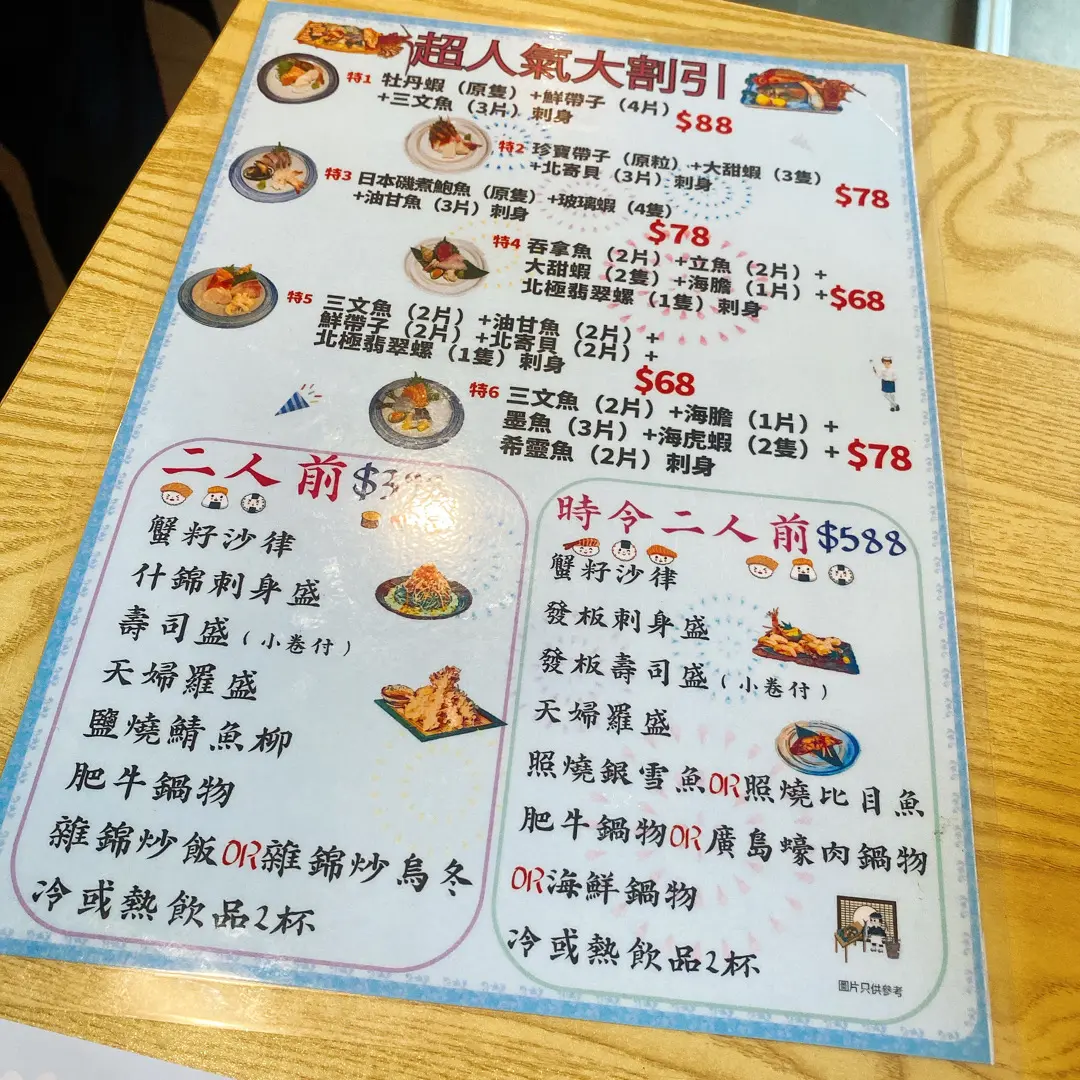 超人氣大割引
特1 牡丹蝦（原隻）+鮮帶子（4片）
+三文魚（3片）刺身
$88
特2 珍寶帶子（原粒）+大甜蝦（3隻）
+北寄貝（3片）刺身
$78
特3 日本磯煮鮑魚（原隻）+玻璃蝦（4隻）
+油甘魚（3片）刺身
$78
特4 吞拿魚（2片）+立魚（2片）+
大甜蝦（2隻）+海膽（1片）+
北極翡翠螺（1隻）刺身
$68
特5 三文魚（2片）+油甘魚（2片）+
鮮帶子（2片）+北寄貝（2片）+
北極翡翠螺（1隻）刺身
$68
特6 三文魚（2片）+海膽（1片）+
墨魚（3片）+海虎蝦（2隻）+
希靈魚（2片）刺身
$78
二人前
蟹籽沙律
什錦刺身盛
壽司盛（小卷付）
天婦羅盛
鹽燒鯖魚柳
肥牛鍋物
雜錦炒飯OR雜錦炒烏冬
冷或熱飲品2杯
時令二人前$588
蟹籽沙律
發板刺身盛
發板壽司盛（小卷付）
天婦羅盛
照燒銀雪魚OR照燒比目魚
肥牛鍋物OR廣島蠔肉鍋物
OR海鮮鍋物
冷或熱飲品2杯
圖片只供參考